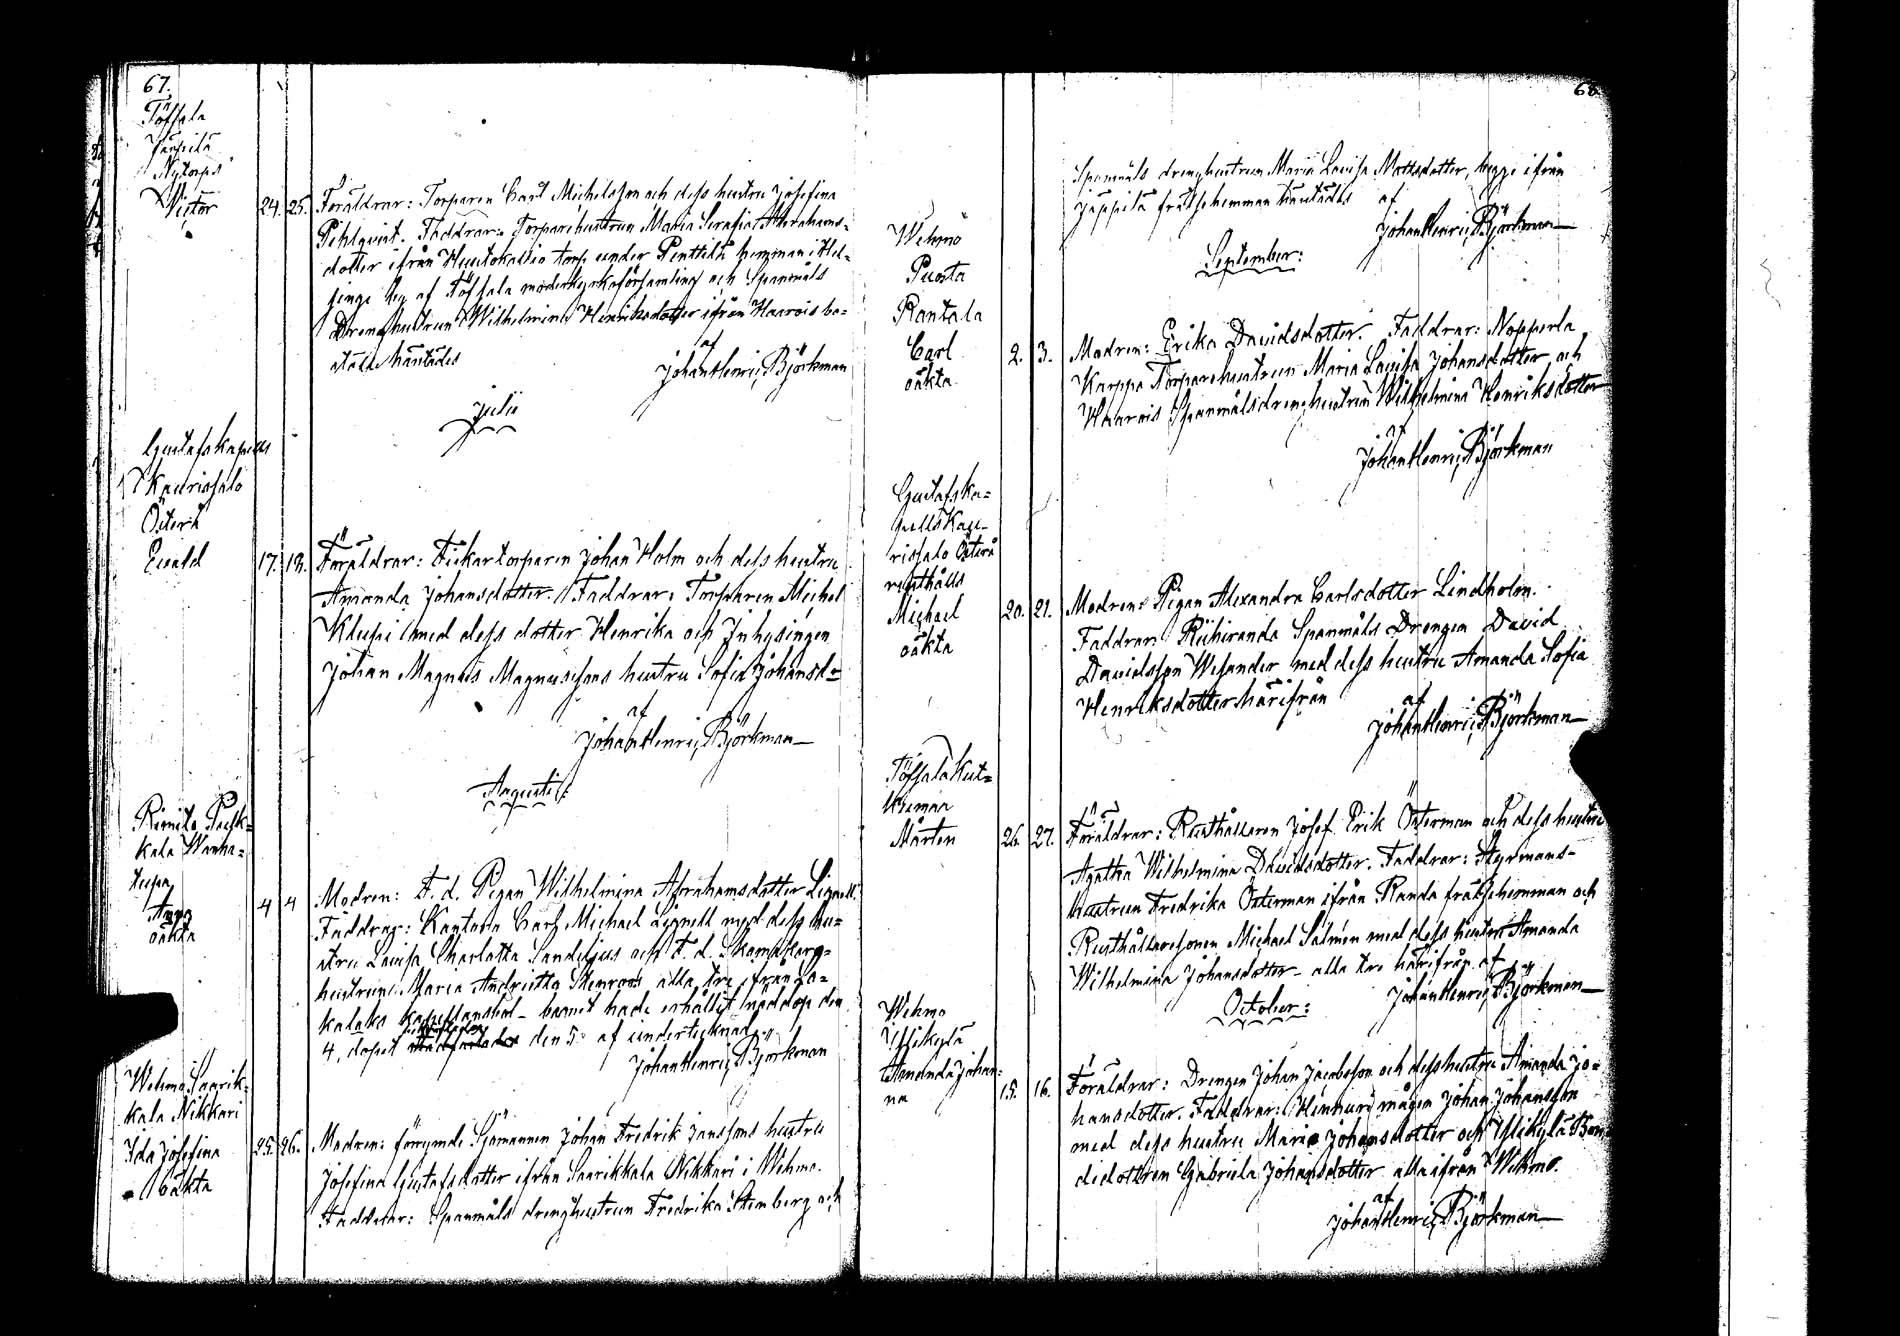 67.
Töfsala
Jäppilä
Nytorps
Victor 24. 25. Föräldrar: Torparen Carl Michelsson och dess hustru Josefina
Pihlqvist. Faddrar: Torparehustrun Maria Serafia Abrahams-
dotter ifrån torp under Penttilä hemman i Hel-
singe by af Töfsala moderkyrkoförsamling och Spanmåls
Drenghustrun Wilhelmina Henriksdotter ifrån Haarois bo-
ställe häntades af
Johan Henric Björkman
Julii
Gustafs kapells
Kaurissalo
Österå
Evald 17. 18. Föräldrar: Fiskartorparen Johan Holm och dess hustru
Amanda Johansdotter. Faddrar: Torparen Michel
Klupi med dess dotter Henrika och Inhysingen
Johan Magnus Magnussons hustru Sofia Johansd=
af
Johan Henric Björkman
Augusti:
Rimito Pask=
kala Wanha=
tupa
Anna
oäkta 4 4 Modren: F. d. Pigan Wilhelmina Abrahamsdotter Lignell.
Faddrar: Kantorn Carl Michael Lignell med dess hu=
stru Lovisa Charlotta Sandelius och F. d.
hustrun Maria Andrietta Stenroos alla tre från Lo=
kalaks kapellansbol - barnet hade erhållit nöddop den
4, dopet den 5 af undertecknad
Johan Henric Björkman
Wehmo Saarik=
kala Nikkari
Ida Josefina
oäkta 25. 26. Modren: förrymde Sjömannen Johan Fredrik Janssons hustru
Josefina Gustafsdotter ifrån Saarikkala Nikkari i Wehmo.
Faddrar: Spanmåls drenghustrun Fredrika Stenberg och
68.
Spanmåls drenghustrun Maria Lovisa Mattsdotter, begge ifrån
Jäppilä frälsehemman häntades af
Johan Henric Björkman
September:
Wehmo
Puosta
Rantala
Carl
oäkta 2. 3. Modren: Erika Davidsdotter. Faddrar: Nopperla
Karppa Torparehustrun Maria Lovisa Johansdotter och
Haarois Spanmålsdrenghustrun Wilhelmina Henriksdotter
af
Johan Henric Björkman
Gustafs ka=
pells Kau-
rissalo Österå
rusthålls
Michael
oäkta 20. 21. Modren: Pigan Alexandra Carlsdotter Lindholm.
Faddrar: Riihiranda Spanmåls Drengen David
Davidsson Wesander med dess hustru Amanda Sofia
Henriksdotter härifrån
af
Johan Henric Björkman
Töfsala Kut=
kumaa
Mårten 26. 27. Föräldrar: Rusthållaren Josef Erik Österman och dess hustru
Agatha Wilhelmina Davidsdotter. Faddrar: Styrmans-
hustrun Fredrika Österman ifrån Randa frälsehemman och
Rusthållaresonen Michael Salmén med dess hustru Amanda
Wilhelmina Johansdotter - alla tre härifrån af
Johan Henric Björkman
October:
Wehmo
Ussikylä
Amanda Johan=
na 15. 16. Föräldrar: Drengen Johan Jacobsson och dess hustru Amanda Jo=
hansdotter. Faddrar: mågen Johan Johansson
med dess hustru Maria Johansdotter och Ussikylä Bon=
dedottren Gabriela Johansdotter alla ifrån Wehmo.
af
Johan Henric Björkman